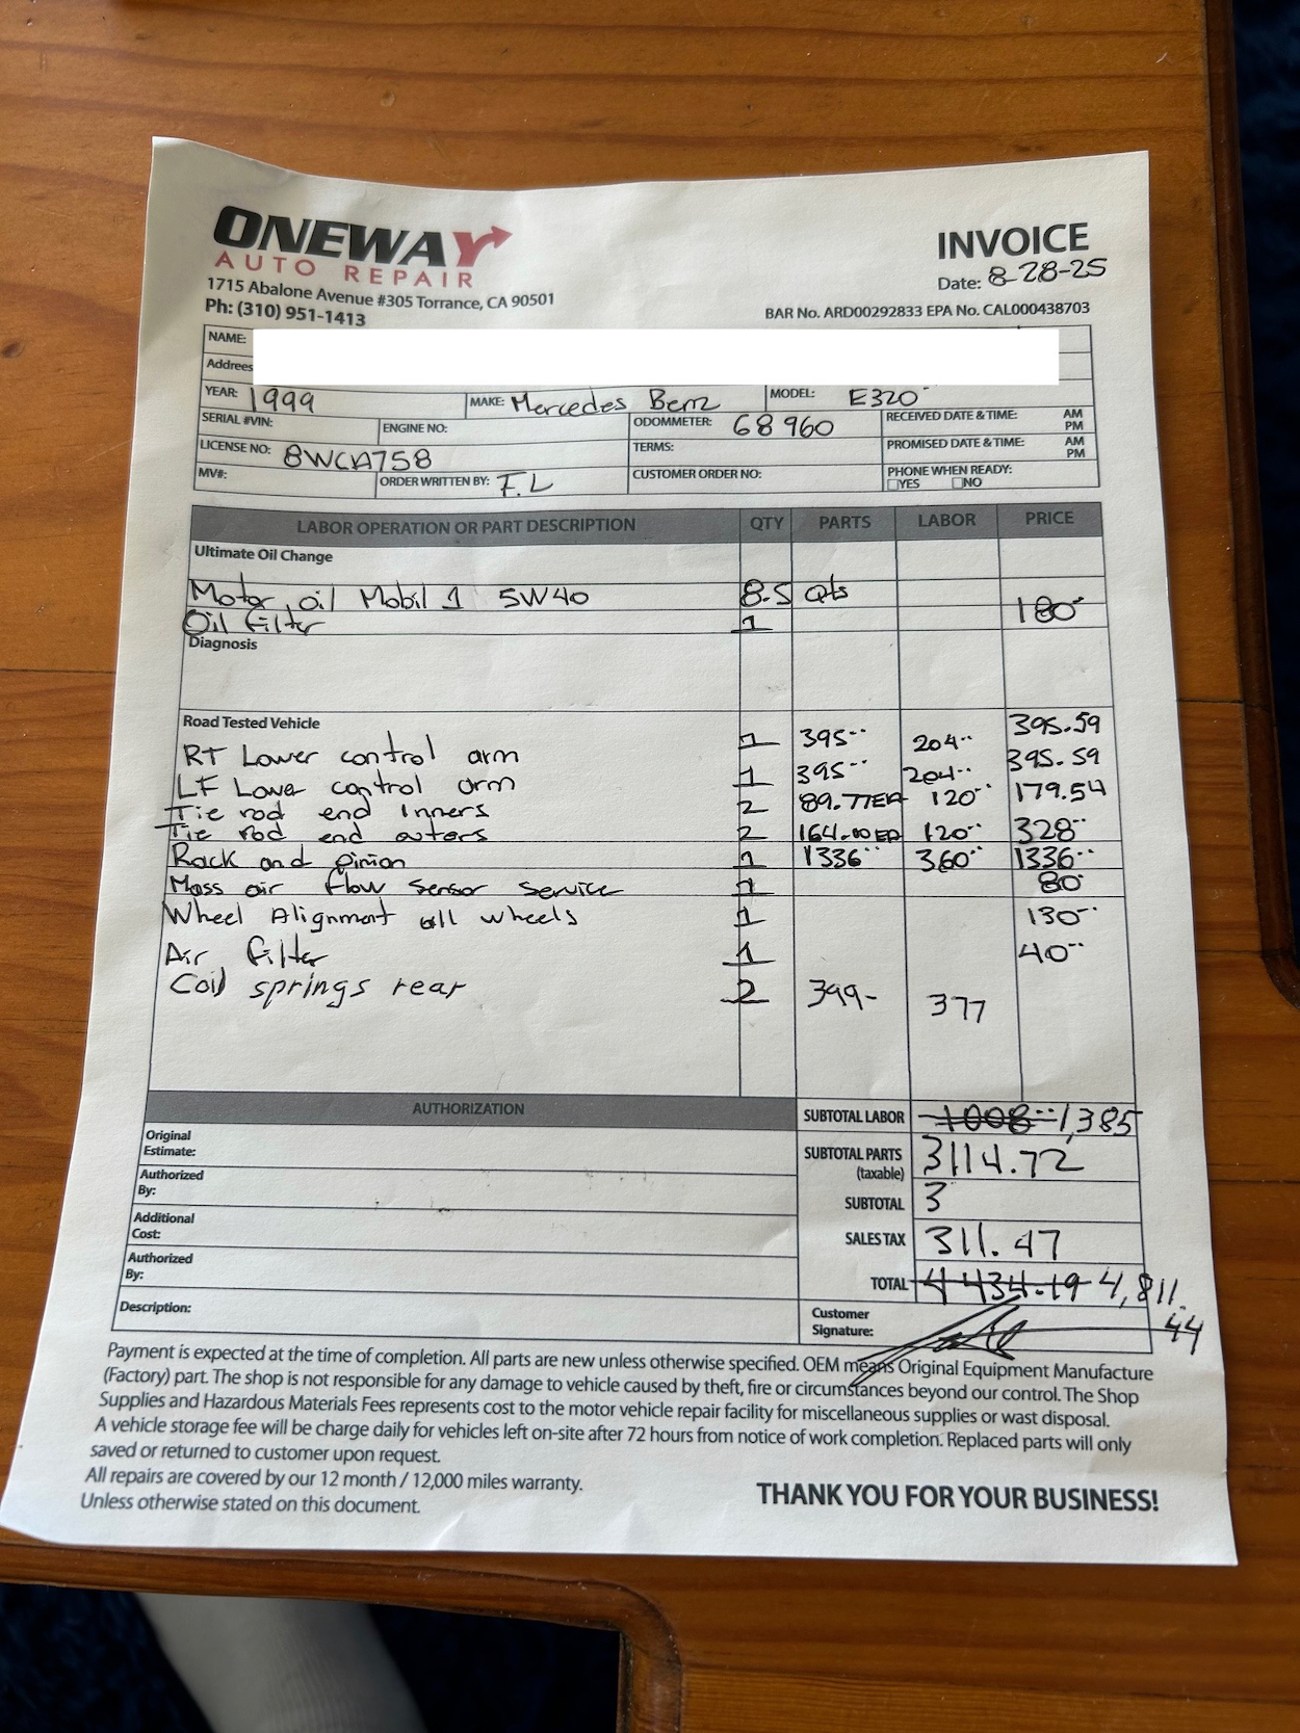 ONEWAY
AUTO REPAIR
1715 Abalone Avenue #305 Torrance, CA 90501
Ph: (310) 951-1413
INVOICE
Date: 8-28-25
BAR No. ARD00292833 EPA No. CAL000438703
NAME:
Addrees
YEAR: 1999 MAKE: Mercedes Benz MODEL: E320
SERIAL #VIN: ENGINE NO: ODOMMETER: 68960 RECEIVED DATE & TIME: AM PM
LICENSE NO: 8WCA758 TERMS: PROMISED DATE & TIME: AM PM
MV#: ORDER WRITTEN BY: F.L CUSTOMER ORDER NO: PHONE WHEN READY: YES NO
LABOR OPERATION OR PART DESCRIPTION QTY PARTS LABOR PRICE
Ultimate Oil Change
Motor oil Mobil 1 5W40 8.5 Qts
Oil filter 1 180
Diagnosis
Road Tested Vehicle
RT Lower control arm 1 395 204 395.59
LF Lower control arm 1 395 204 395.59
Tie rod end inners 2 89.77EA 120 179.54
Tie rod end outers 2 164.00EA 120 328
Rack and pinion 1 1336 360 1336
Mass air flow sensor service 1 80
Wheel Alignment all wheels 1 130
Air filter 1 40
Coil springs rear 2 399- 377
AUTHORIZATION
Original Estimate:
Authorized By:
Additional Cost:
Authorized By:
Description:
SUBTOTAL LABOR 1008 1,385
SUBTOTAL PARTS (taxable) 3114.72
SUBTOTAL 3
SALES TAX 311.47
TOTAL 4434.19 4,811.44
Customer Signature:
Payment is expected at the time of completion. All parts are new unless otherwise specified. OEM means Original Equipment Manufacture
(Factory) part. The shop is not responsible for any damage to vehicle caused by theft, fire or circumstances beyond our control. The Shop
Supplies and Hazardous Materials Fees represents cost to the motor vehicle repair facility for miscellaneous supplies or wast disposal.
A vehicle storage fee will be charge daily for vehicles left on-site after 72 hours from notice of work completion. Replaced parts will only
saved or returned to customer upon request.
All repairs are covered by our 12 month / 12,000 miles warranty.
Unless otherwise stated on this document.
THANK YOU FOR YOUR BUSINESS!